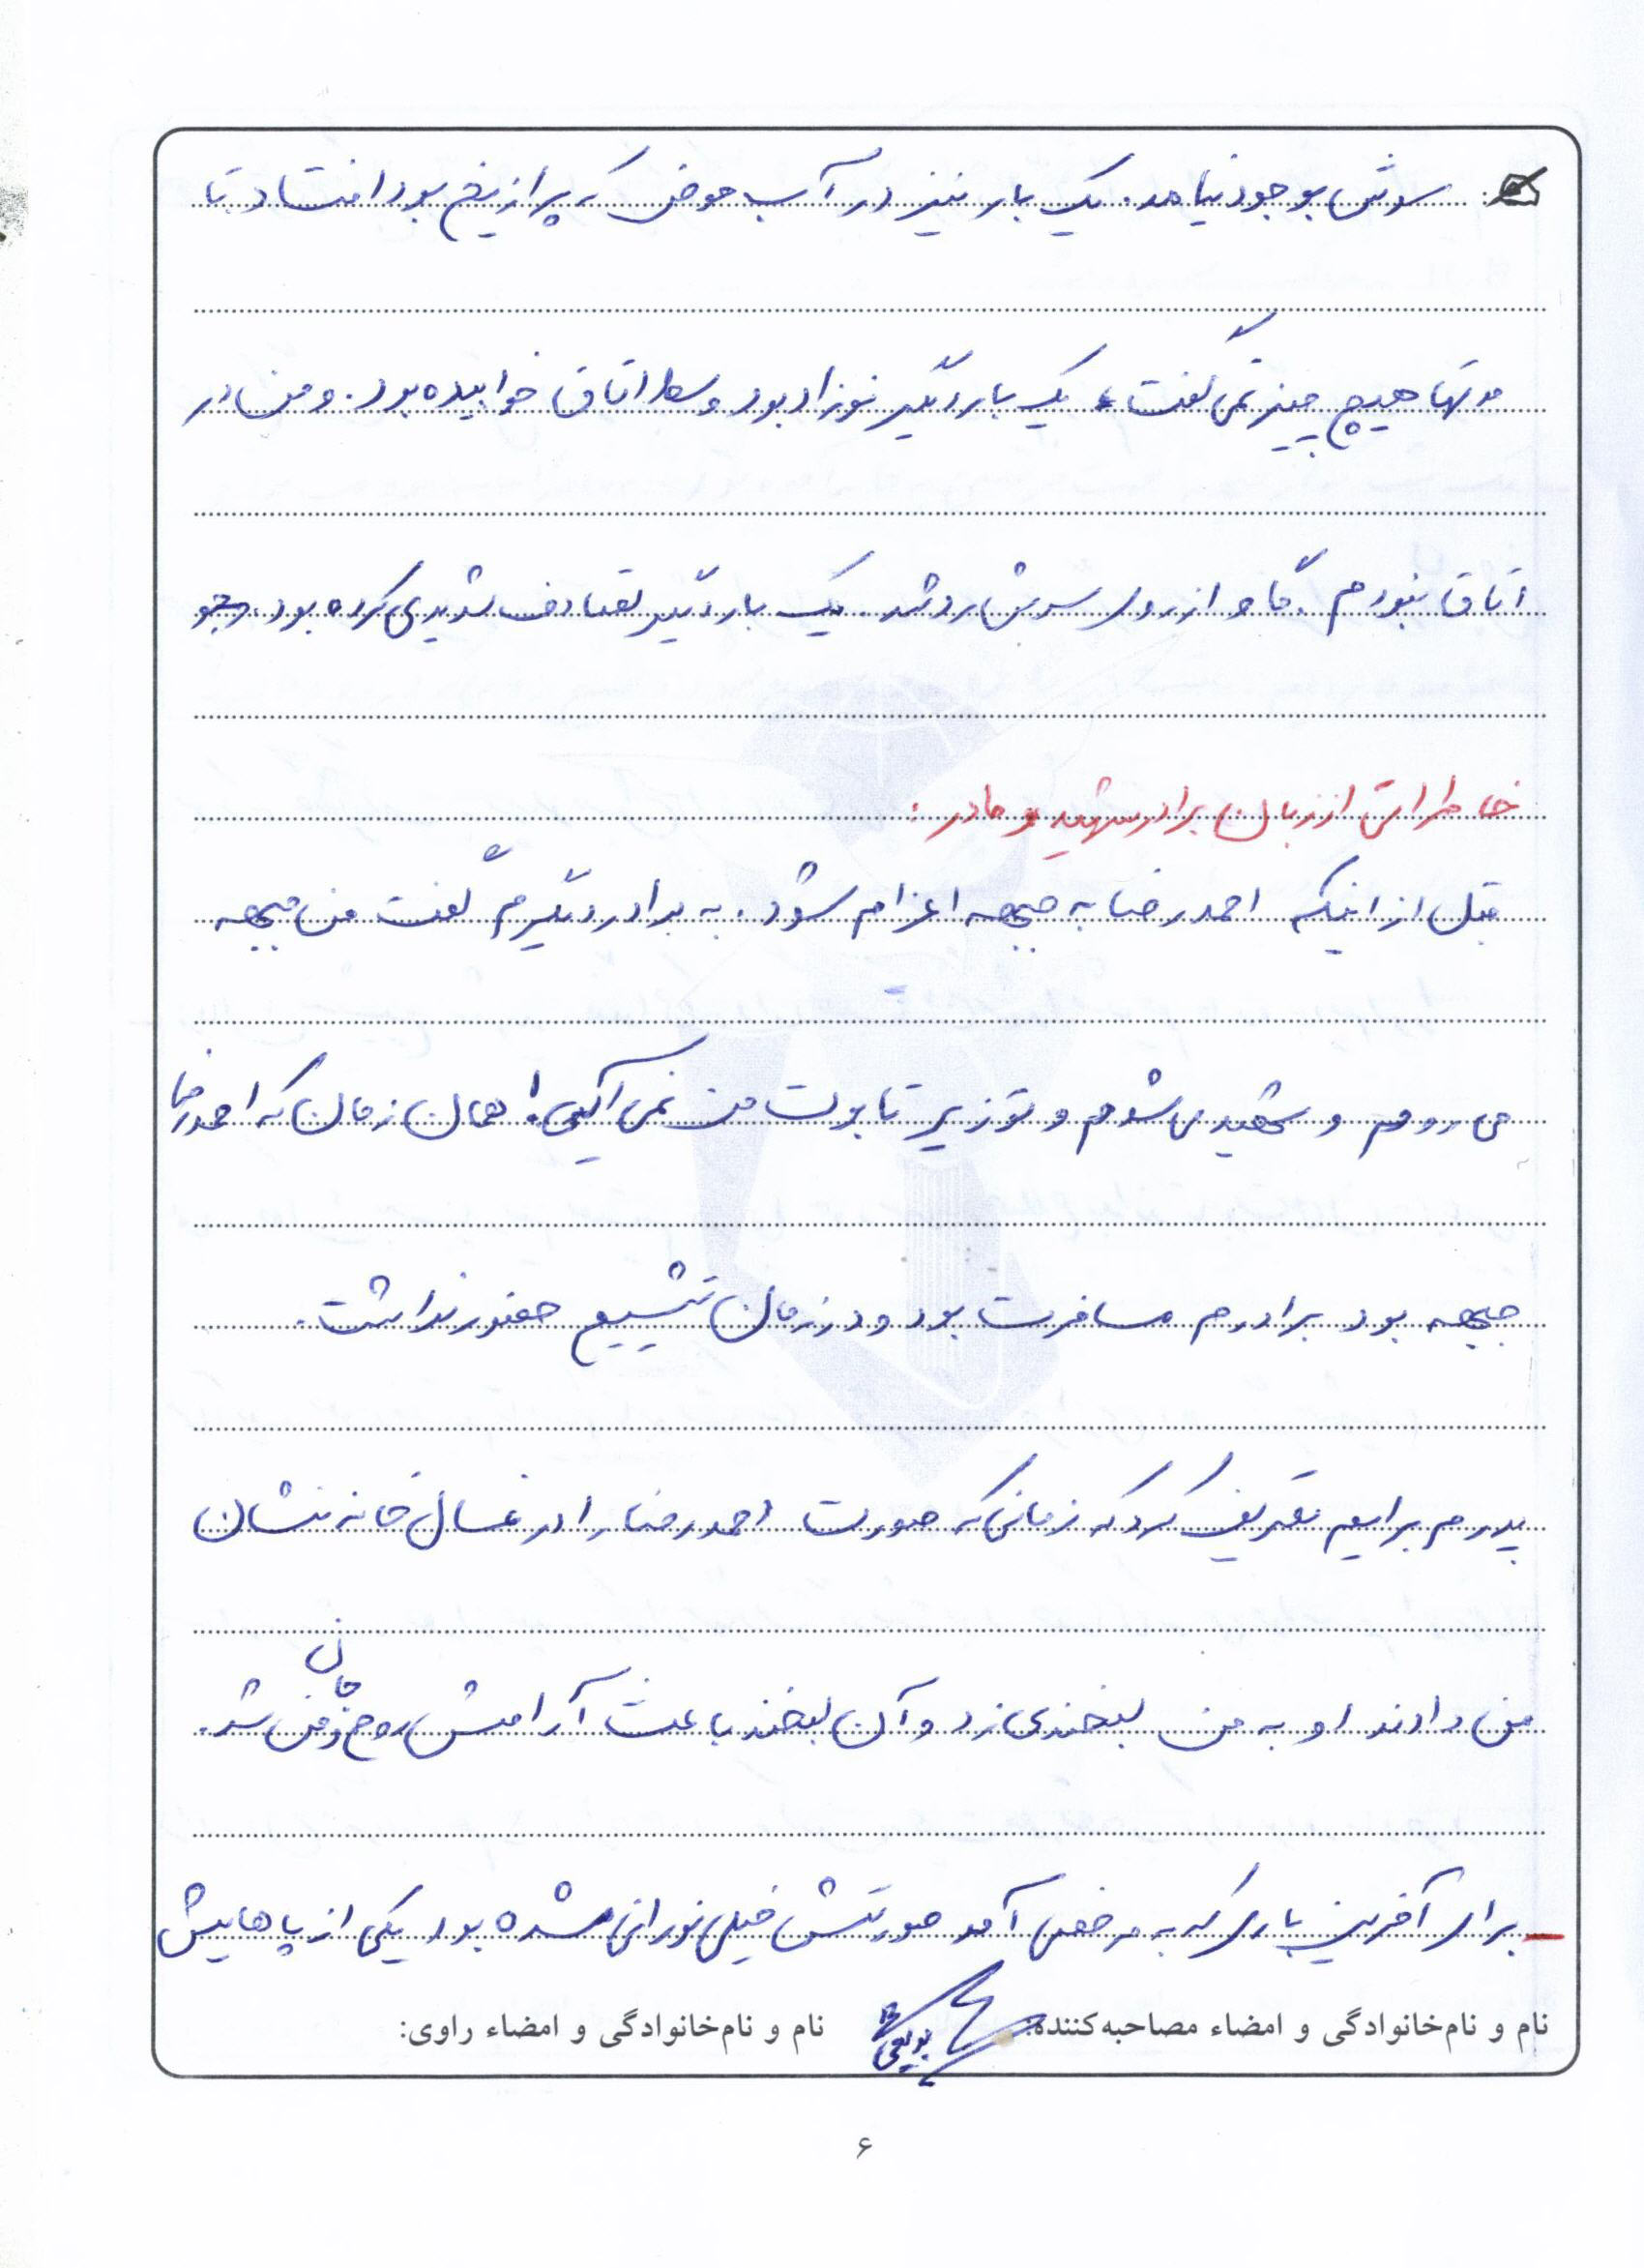 سرش بوجود نیامد. یک بار نیز در آب حوض که پر از یخ بود افتاد تا
مدتها هیچ چیز نمی گفت، یک بار دیگر نوزاد بود وسط اتاق خوابیده بود. و من در
اتاق نبودم. گاو از روی سرش رد شد. یک بار دیگر تصادف شدیدی کرده بود.
خاطراتی از زبان برادر شهید و مادر:
قبل از اینکه احمدرضا به جبهه اعزام شود. به برادر دیگرم گفت من جبهه
می روم و شهید می شوم و تو زیر تابوت من نمی آئی! همان زمان که احمدرضا
جبهه بود برادرم مسافرت بود و در زمان تشییع حضور نداشت.
پدرم برایم تعریف کرد که زمانی که صورت احمدرضا را در غسال خانه نشان
من دادند او به من لبخندی زد و آن لبخند باعث آرامش روح و جان من شد.
– برای آخرین باری که به مرخصی آمد صورتش خیلی نورانی شده بود یکی از پاهایش
نام و نام‌خانوادگی و امضاء مصاحبه‌کننده: نام و نام‌خانوادگی و امضاء راوی:
۶